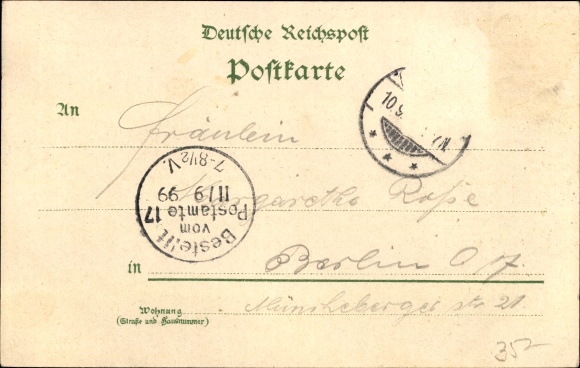 Deutsche Reichspost
Postkarte
An
Fräulein
Margarethe Rose
in Berlin O
Münchebergerstr. 21
Wohnung
(Straße und Hausnummer)
Bestellt
vom
Postamte 17
11/9 99
7-8½V.
10.9.
35-